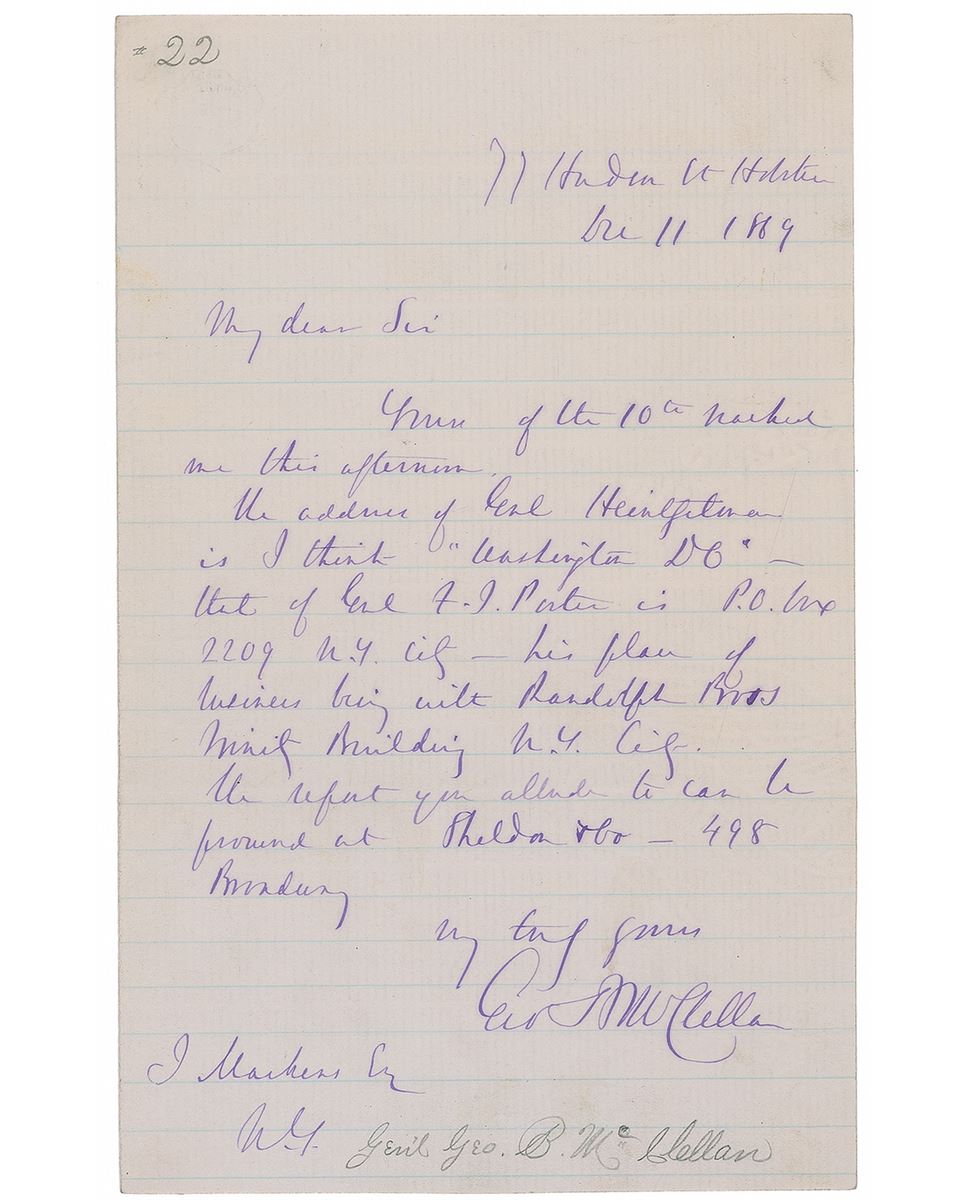 # 22
77 Hudson St Hoboken
Dec 11 1869
My dear Sir
Yours of the 10th reached
me this afternoon.
The address of Genl Heintzelman
is I think "Washington DC" —
that of Genl F. J. Porter is P.O. box
2209 N.Y. City — his place of
business being with Randolph Bros
Trinity Building N.Y. City.
The report you allude to can be
procured at Sheldon & Co — 498
Broadway
Very truly yours
Geo B McClellan
I Markens Esq
N.Y.
Gen'l Geo. B. McClellan